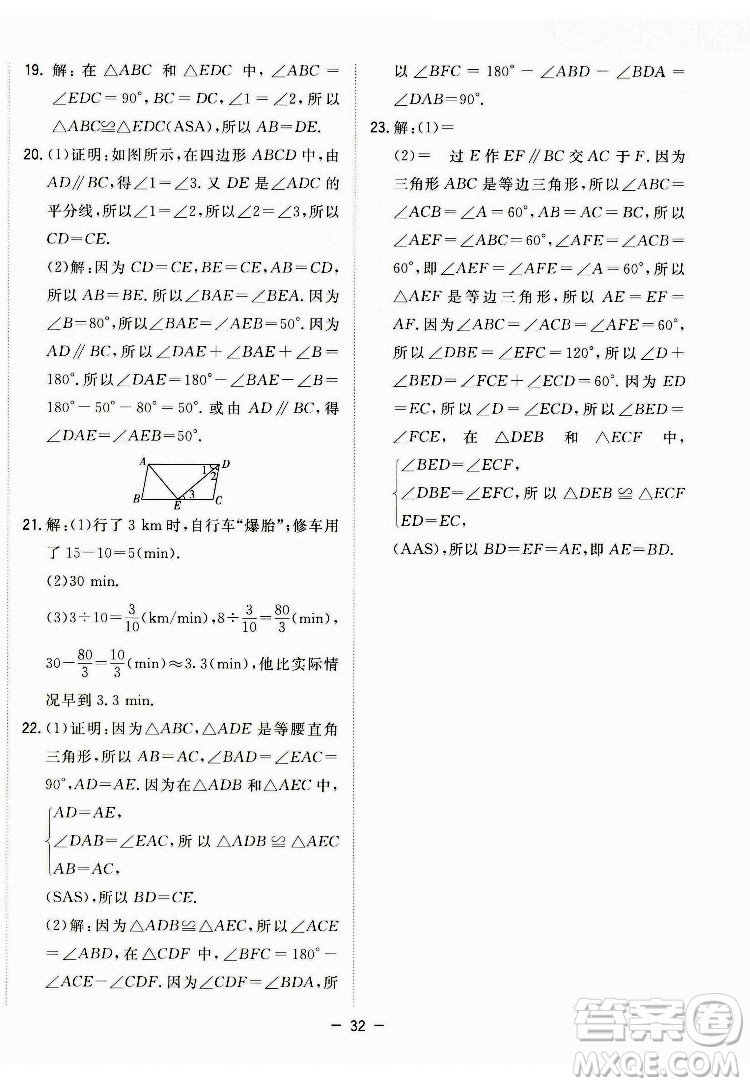 19. 解：在 △ABC 和 △EDC 中，∠ABC=
∠EDC=90°，BC=DC，∠1=∠2，所以
△ABC≌△EDC(ASA)，所以AB=DE.
20. (1)证明：如图所示，在四边形 ABCD 中，
由 AD∥BC，得∠1=∠3. 又 DE 是∠ADC 的
平分线，所以∠1=∠2，所以∠2=∠3，所以
CD=CE.
(2)解：因为 CD=CE，BE=CE，AB=CD，
所以 AB=BE. 所以∠BAE=∠BEA. 因为
∠B=80°，所以∠BAE=∠AEB=50°. 因为
AD∥BC，所以∠DAE+∠BAE+∠B=
180°. 所以∠DAE=180°-∠BAE-∠B=
180°-50°-80°=50°. 或由 AD∥BC，得
∠DAE=∠AEB=50°.
A 1 D
2
B E 3 C
21. 解：(1)行了 3 km时，自行车“爆胎”；修车用
了 15-10=5(min).
(2)30 min.
(3)3÷10=3/10(km/min)，8÷3/10=80/3(min)，
30-80/3=10/3(min)≈3.3(min)，他比实际情
况早到 3.3 min.
22. (1)证明：因为△ABC，△ADE 是等腰直角
三角形，所以 AB=AC，∠BAD=∠EAC=
90°，AD=AE. 因为在△ADB 和△AEC中，
{AD=AE，
∠DAB=∠EAC，所以 △ADB ≌ △AEC
AB=AC，
(SAS)，所以 BD=CE.
(2)解：因为△ADB≌△AEC，所以∠ACE
=∠ABD，在△CDF 中，∠BFC=180°-
∠ACE-∠CDF. 因为∠CDF=∠BDA，所
以 ∠BFC = 180° - ∠ABD - ∠BDA =
∠DAB=90°.
23. 解：(1)=
(2)= 过 E 作 EF∥BC 交 AC 于 F. 因为
三角形 ABC 是等边三角形，所以∠ABC=
∠ACB=∠A=60°，AB=AC=BC. 所以
∠AEF=∠ABC=60°，∠AFE=∠ACB=
60°，即∠AEF=∠AFE=∠A=60°，所以
△AEF 是等边三角形，所以 AE=EF=
AF. 因为∠ABC=∠ACB=∠AFE=60°，
所以∠DBE=∠EFC=120°，所以∠D+
∠BED=∠FCE+∠ECD=60°. 因为 ED
=EC，所以∠D=∠ECD，所以∠BED=
∠FCE，在 △DEB 和 △ECF 中，
{∠BED=∠ECF，
∠DBE=∠EFC，所以 △DEB ≌ △ECF
ED=EC，
(AAS)，所以 BD=EF=AE，即 AE=BD.
— 32 —
答案卷
MXQE.COM